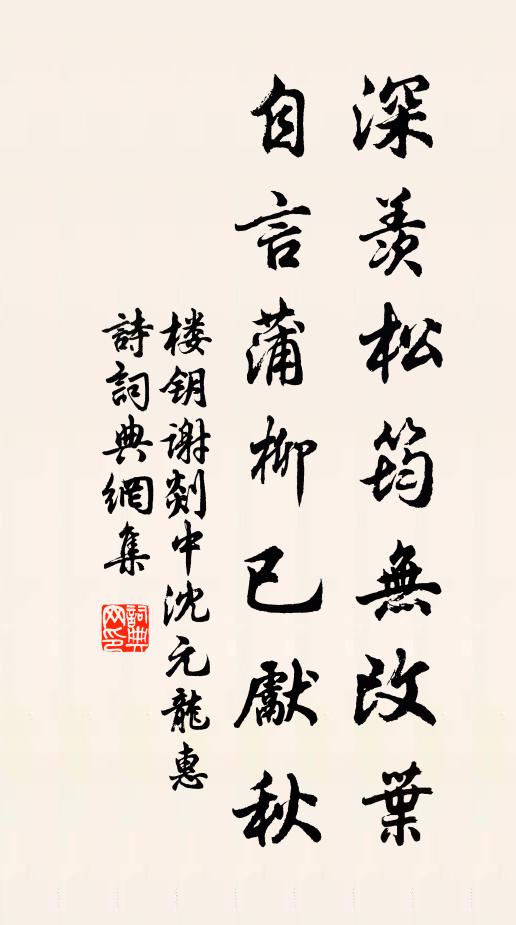 深羨松筠無改葉
自言蒲柳已獻秋
楼钥谢剡中沈元龍惠
詩詞典網集
詞典
网印